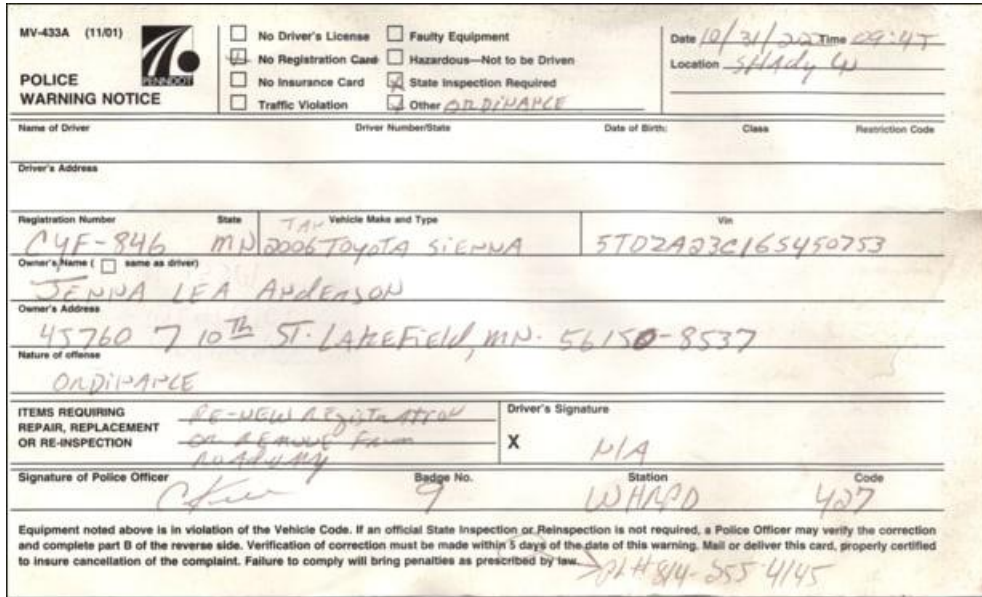 MV-433A (11/01)
PENNDOT
POLICE
WARNING NOTICE
No Driver's License
No Registration Card
No Insurance Card
Traffic Violation
Faulty Equipment
Hazardous—Not to be Driven
State Inspection Required
Other ORDINANCE
Date 10/31/22 Time 09:45
Location SHADY LN
Name of Driver Driver Number/State Date of Birth: Class Restriction Code
Driver's Address
Registration Number State Vehicle Make and Type Vin
TAN
CYF-846 MN 2006 TOYOTA SIENNA 5TDZA23C16S450753
Owner's Name ( same as driver)
JENNA LEA ANDERSON
Owner's Address
45760 710th ST. LAKEFIELD, MN. 56150-8537
Nature of offense
ORDINANCE
ITEMS REQUIRING
REPAIR, REPLACEMENT
OR RE-INSPECTION
RE-NEW REGISTRATION
OR REMOVE FROM
ROADWAY
Driver's Signature
X N/A
Signature of Police Officer Badge No. Station Code
9 WHAPD 427
Equipment noted above is in violation of the Vehicle Code. If an official State Inspection or Reinspection is not required, a Police Officer may verify the correction
and complete part B of the reverse side. Verification of correction must be made within 5 days of the date of this warning. Mail or deliver this card, properly certified
to insure cancellation of the complaint. Failure to comply will bring penalties as prescribed by law.
PH# 814-255-4145